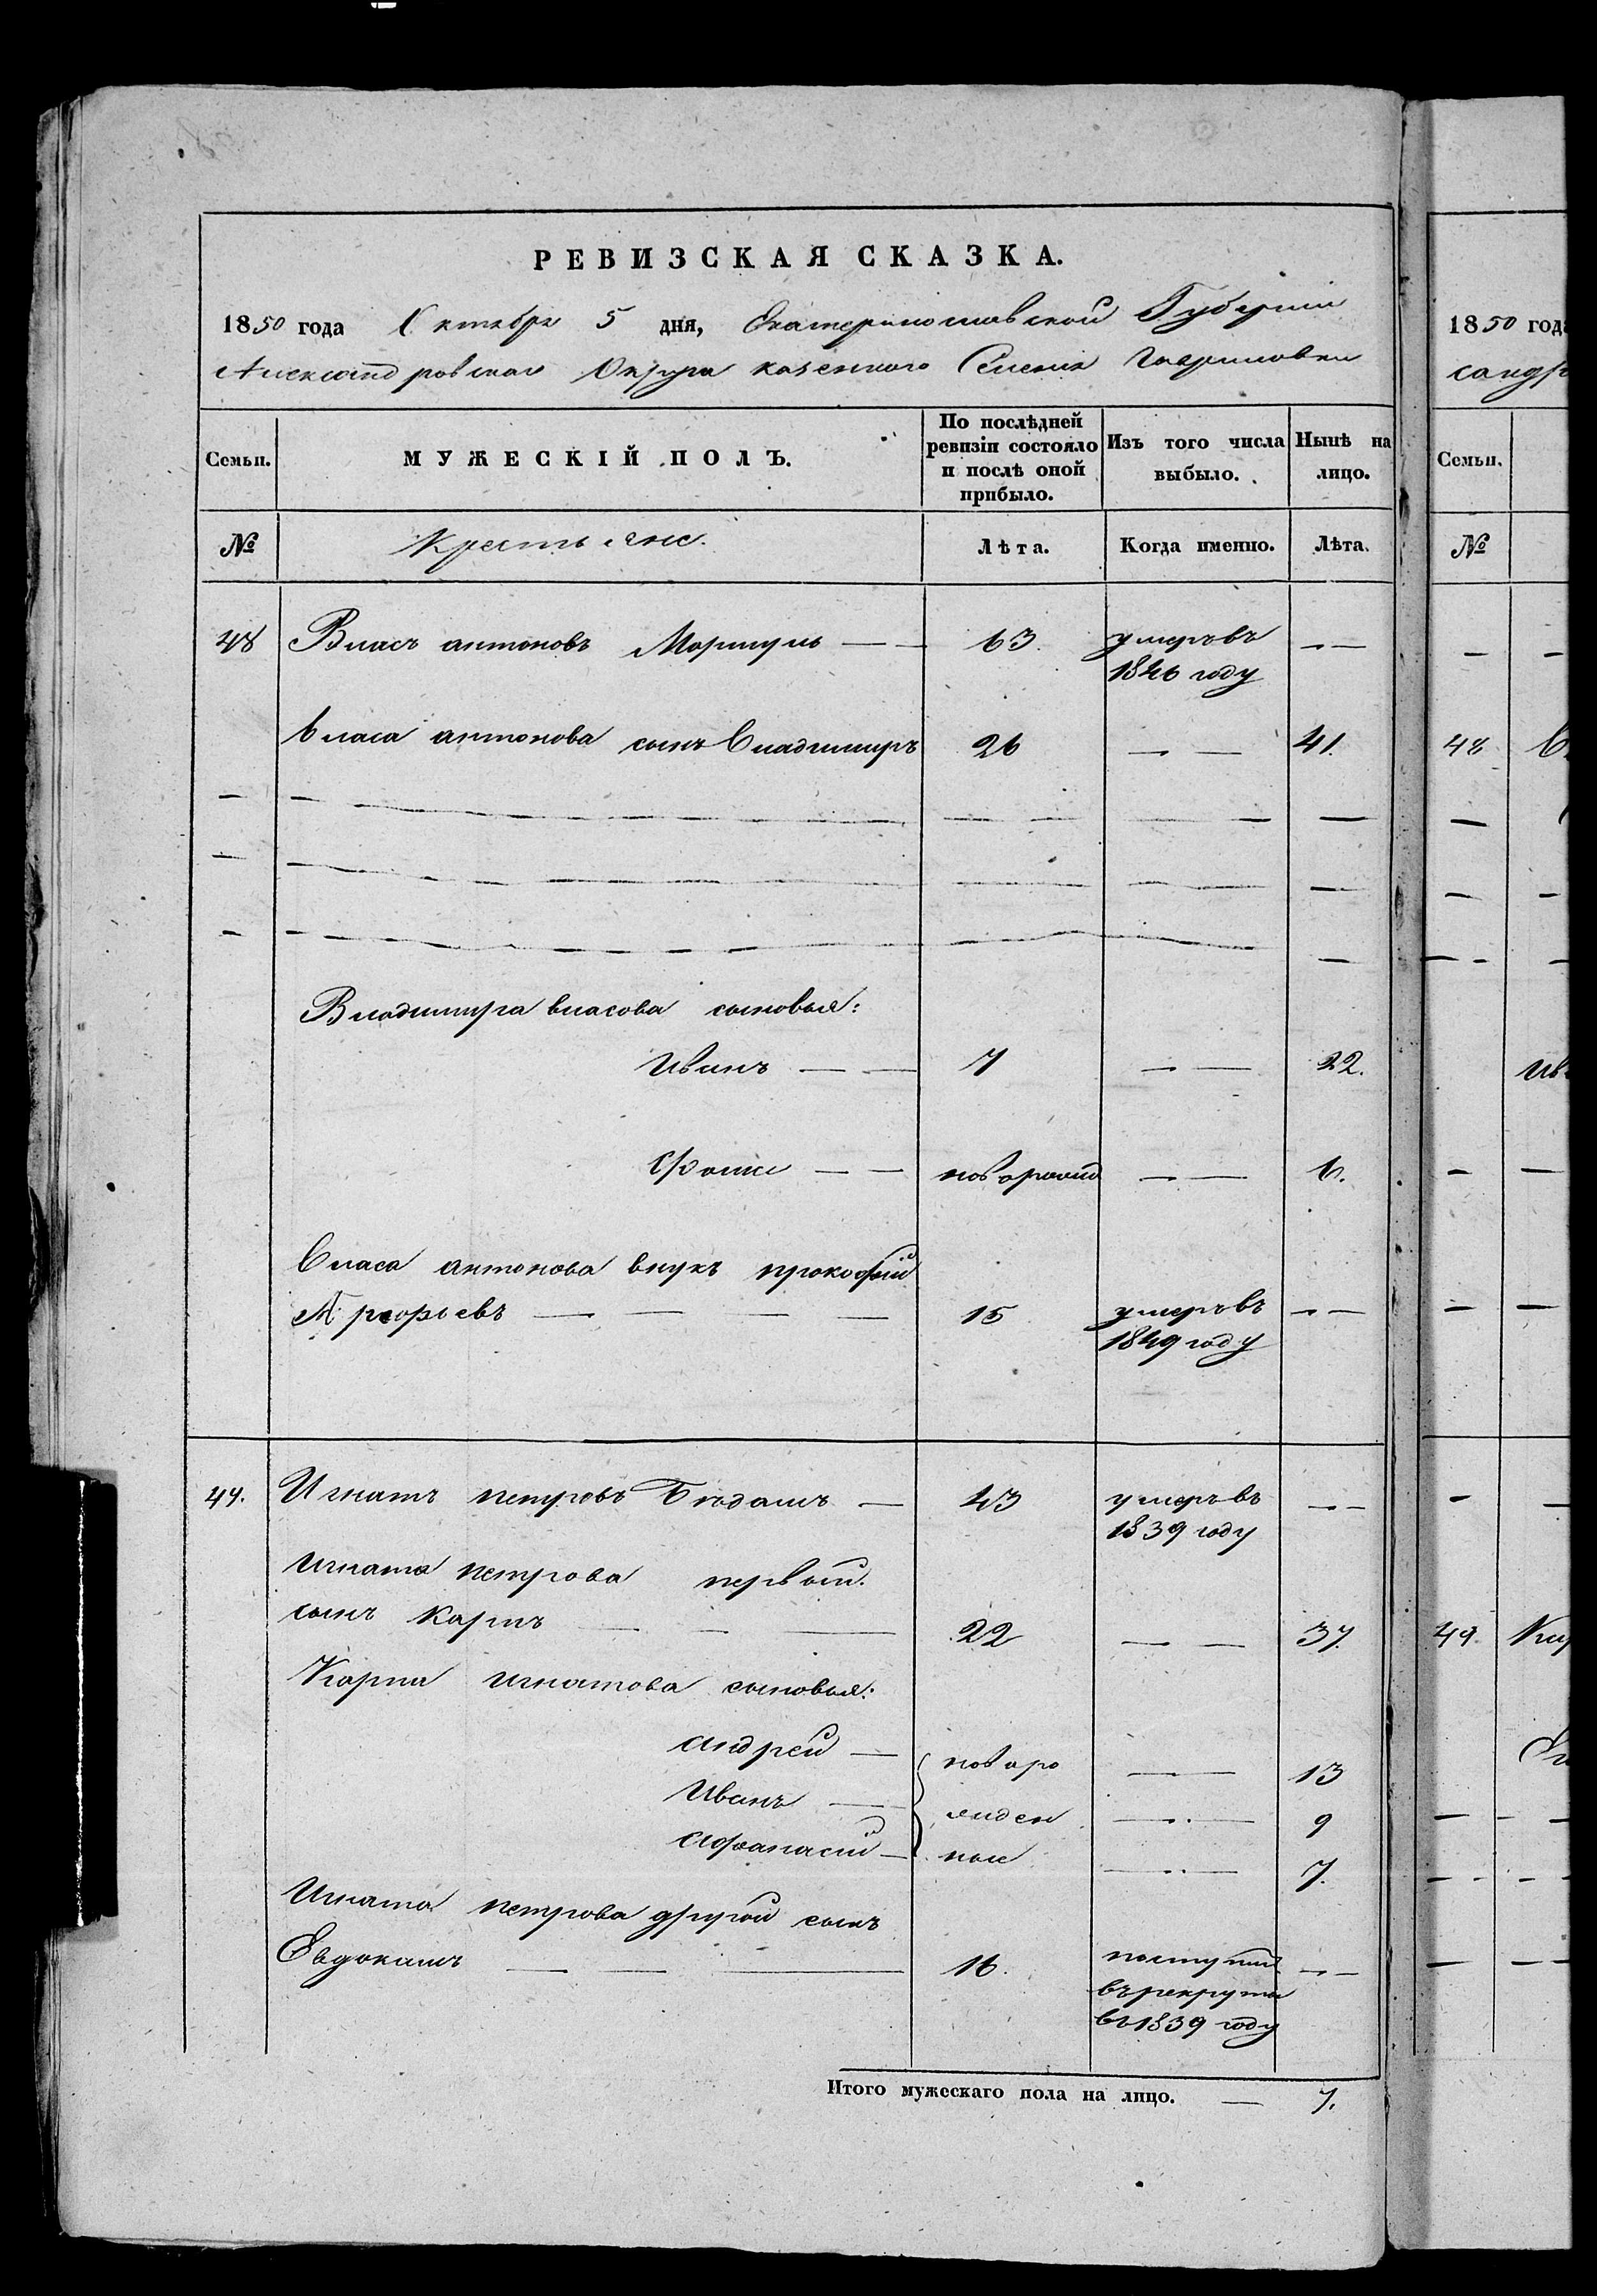 РЕВИЗСКАЯ СКАЗКА.
1850 года Октября 5 дня, Екатеринославской Губерніи
Александровскаго Округа казеннаго Селенія Гавриловки
Семьи. МУЖЕСКІЙ ПОЛЪ. По послѣдней ревизіи состояло и послѣ оной прибыло. Изъ того числа выбыло. Нынѣ на лицо.
№ Крестьяне. Лѣта. Когда именно. Лѣта.
48 Власъ антоновъ — — 63. умеръ въ — —
1846 году
Власа антонова сынъ Владимиръ 26 — — 41.
Владимира власова сыновья:
Иванъ — — 7 — — 22.
Фома — — новорожд — — 6.
Власа антонова внукъ прокофій
15 умеръ въ — —
1849 году
49. Игнатъ петровъ — 43 умеръ въ — —
1839 году
Игната петрова первый
сынъ Карпъ — — — 22 — — 37.
Карпа игнатова сыновья:
андрей — новоро — — 13
Иванъ — жден — — 9
афанасій — ные — — 7.
Игната петрова другой сынъ
Евдокимъ — — — 16. поступил — —
въ рекруты
въ 1839 году
Итого мужескаго пола на лицо. — 7.
1850 года
сандр
Семьи.
№
48
Ив
49.